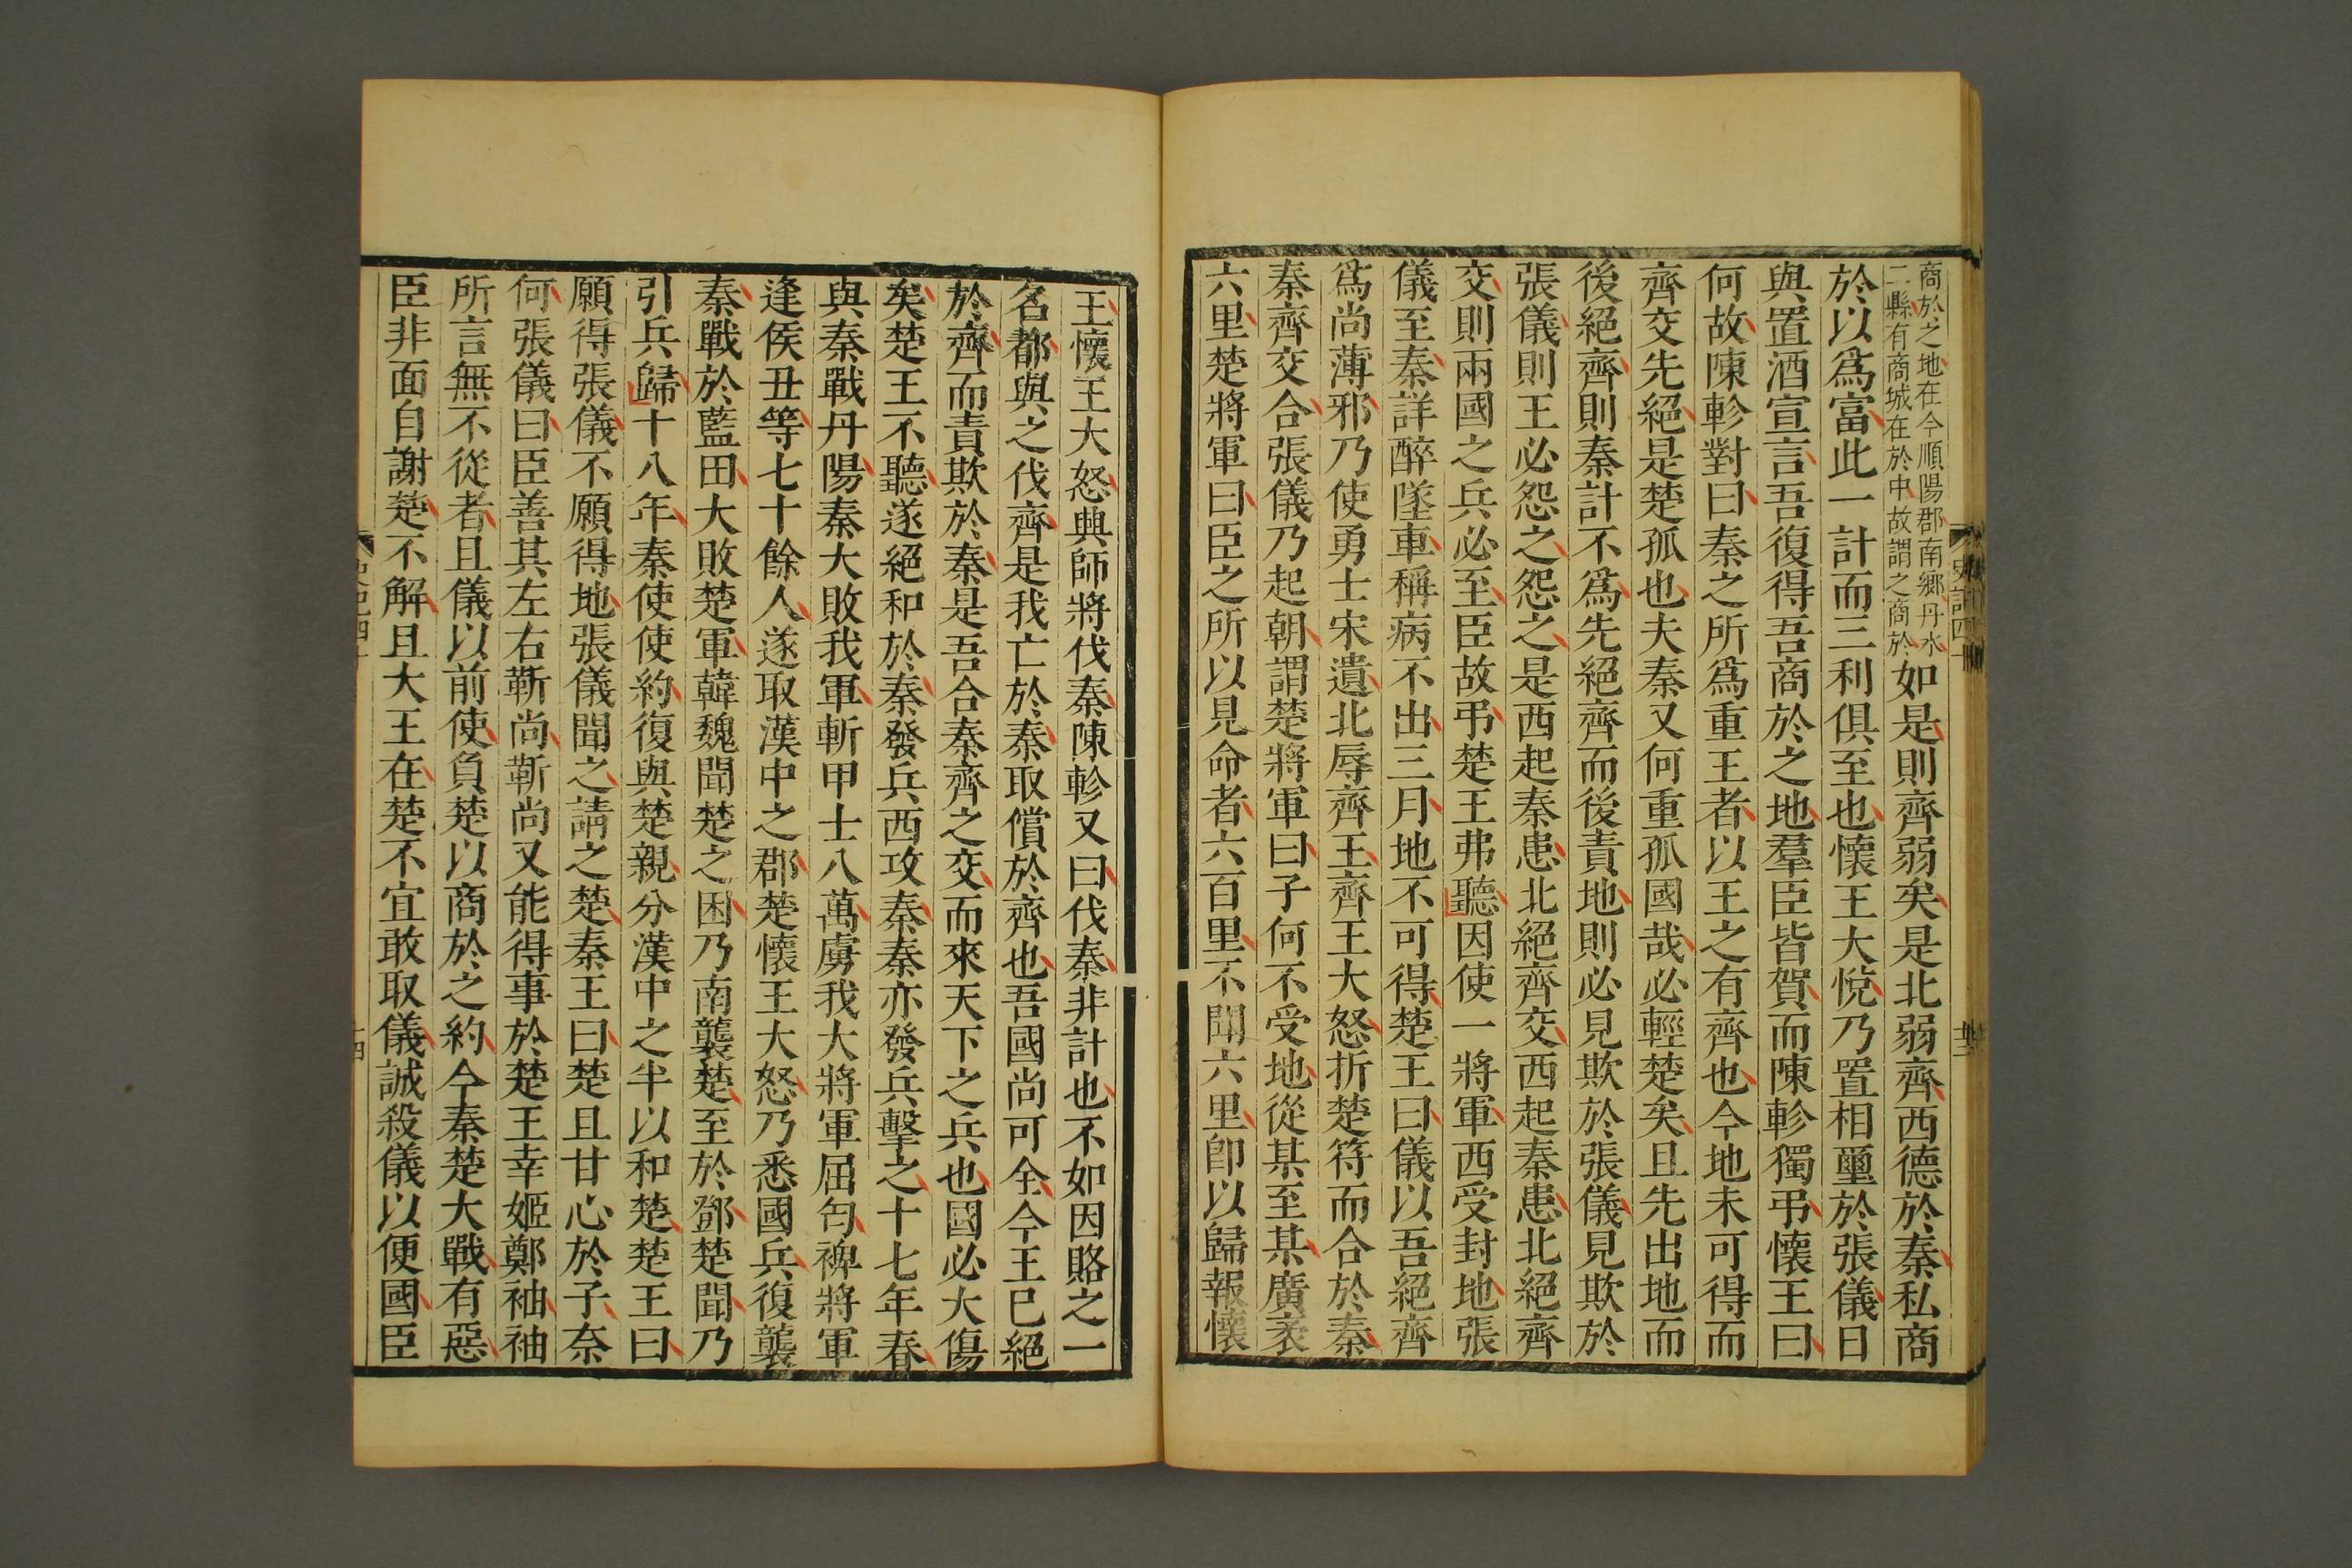 商於之地在今順陽郡南鄉丹水
二縣有商城在於中故謂之商於
如是則齊弱矣是北弱齊西德於秦私商
於以爲富此一計而三利俱至也懷王大悅乃置相璽於張儀日
與置酒宣言吾復得吾商於之地羣臣皆賀而陳軫獨弔懷王曰
何故陳軫對曰秦之所爲重王者以王之有齊也今地未可得而
齊交先絕是楚孤也夫秦又何重孤國哉必輕楚矣且先出地而
後絕齊則秦計不爲先絕齊而後責地則必見欺於張儀見欺於
張儀則王必怨之怨之是西起秦患北絕齊交西起秦患北絕齊
交則兩國之兵必至臣故弔楚王弗聽因使一將軍西受封地張
儀至秦詳醉墜車稱病不出三月地不可得楚王曰儀以吾絕齊
爲尚薄邪乃使勇士宋遺北辱齊王齊王大怒折楚符而合於秦
秦齊交合張儀乃起朝謂楚將軍曰子何不受地從某至某廣袤
六里楚將軍曰臣之所以見命者六百里不聞六里卽以歸報懷
史記四十
王懷王大怒興師將伐秦陳軫又曰伐秦非計也不如因賂之一
名都與之伐齊是我亡於秦取償於齊也吾國尚可全今王已絕
於齊而責欺於秦是吾合秦齊之交而來天下之兵也國必大傷
矣楚王不聽遂絕和於秦發兵西攻秦秦亦發兵擊之十七年春
與秦戰丹陽秦大敗我軍斬甲士八萬虜我大將軍屈匄裨將軍
逢侯丑等七十餘人遂取漢中之郡楚懷王大怒乃悉國兵復襲
秦戰於藍田大敗楚軍韓魏聞楚之困乃南襲楚至於鄧楚聞乃
引兵歸十八年秦使使約復與楚親分漢中之半以和楚楚王曰
願得張儀不願得地張儀聞之請之楚秦王曰楚且甘心於子奈
何張儀曰臣善其左右靳尚靳尚又能得事於楚王幸姬鄭袖袖
所言無不從者且儀以前使負楚以商於之約今秦楚大戰有惡
臣非面自謝楚不解且大王在楚不宜敢取儀誠殺儀以便國臣